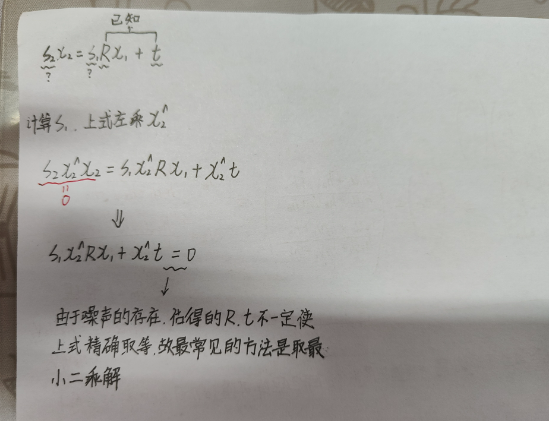 已知
s₂x₂ = s₁Rx₁ + t
? ?
计算s₁. 上式左乘x₂^
s₂x₂^x₂ = s₁x₂^Rx₁ + x₂^t
=
0
⇓
s₁x₂^Rx₁ + x₂^t = 0
↓
由于噪声的存在.估得的R.t不一定使
上式精确取等.故最常见的方法是取最
小二乘解